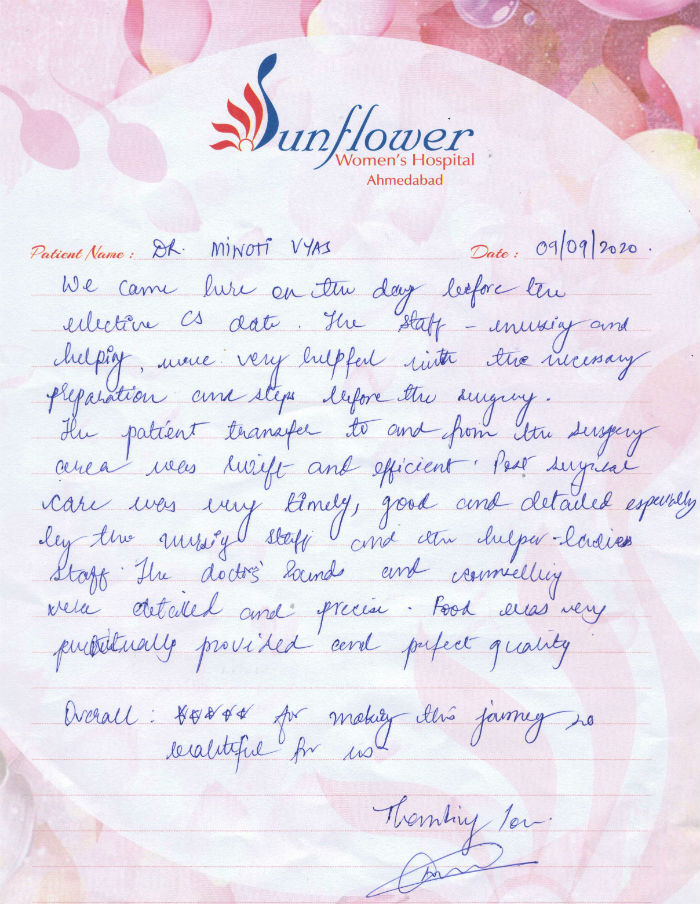 Sunflower
Women's Hospital
Ahmedabad
Patient Name : DR. MINOTI VYAS Date : 09/09/2020.
We came here on the day before the
elective CS date. The staff - nursing and
helping, were very helpful with the necessary
preparation and steps before the surgery.
The patient transfer to and from the surgery
area was swift and efficient. Post surgical
care was very timely, good and detailed especially
by the nursing staff and the helper-ladies
staff. The doctors' rounds and counselling
were detailed and precise. Food was very
punctually provided and perfect quality
Overall : ☆☆☆☆☆ for making this journey so
beautiful for us
Thanking You.